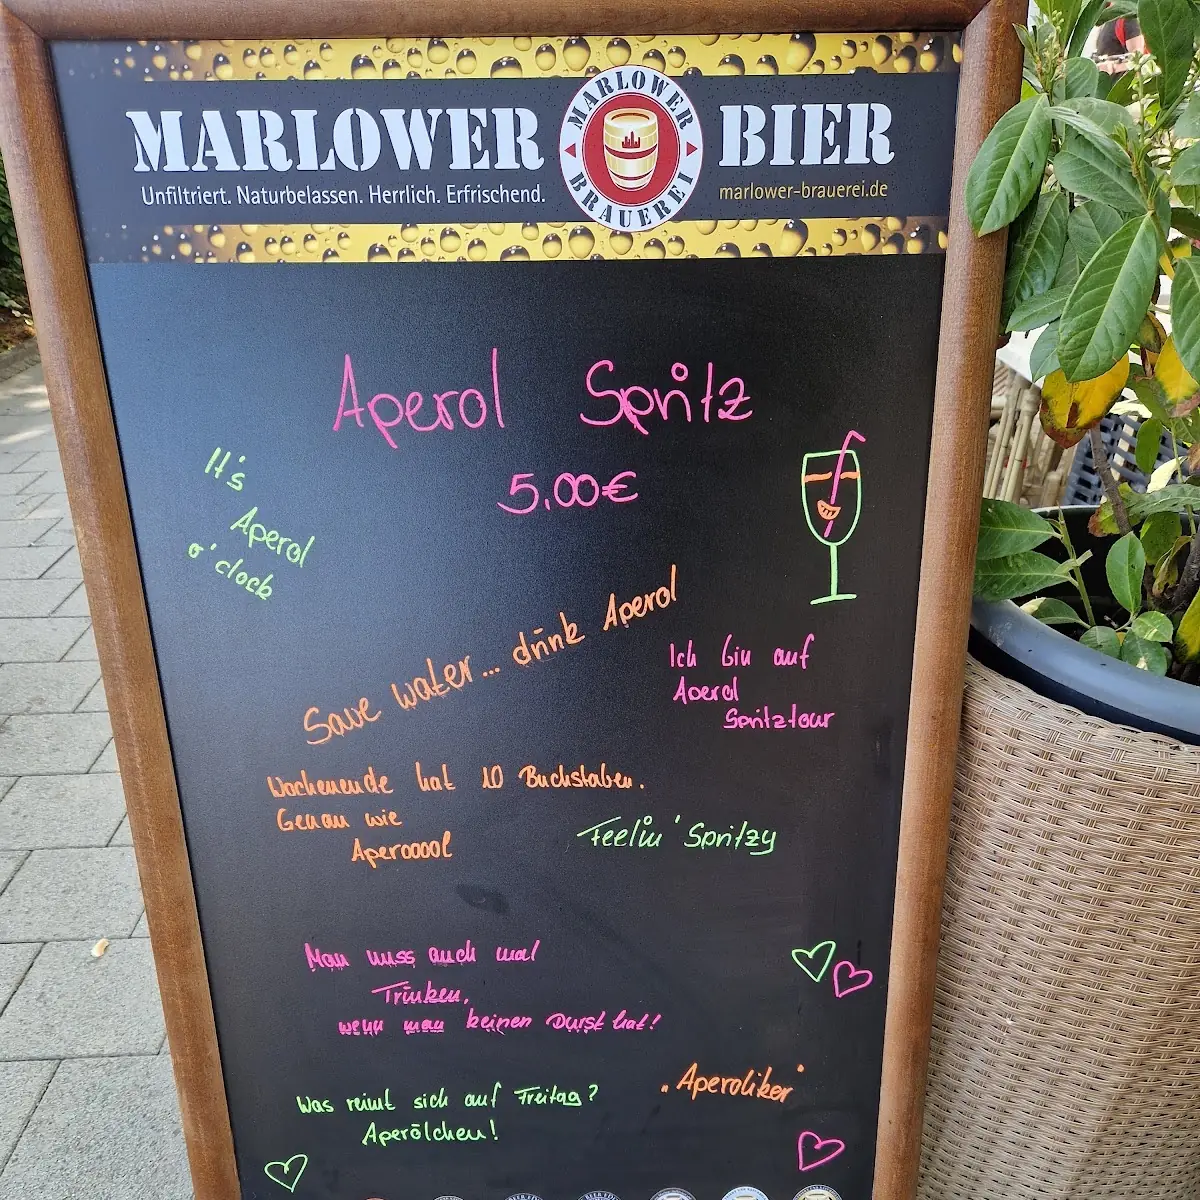 MARLOWER BIER
Unfiltriert. Naturbelassen. Herrlich. Erfrischend.
MARLOWER BRAUEREI
marlower-brauerei.de
Aperol Spritz
5,00€
It's
Aperol
o'clock
Save water... drink Aperol
Ich bin auf
Aperol
Spritztour
Wochenende hat 10 Buchstaben.
Genau wie
Aperooool
Feelin' Spritzy
Man muss auch mal
Trinken,
wenn man keinen Durst hat!
Was reimt sich auf Freitag?
Aperölchen!
„Aperoliker"